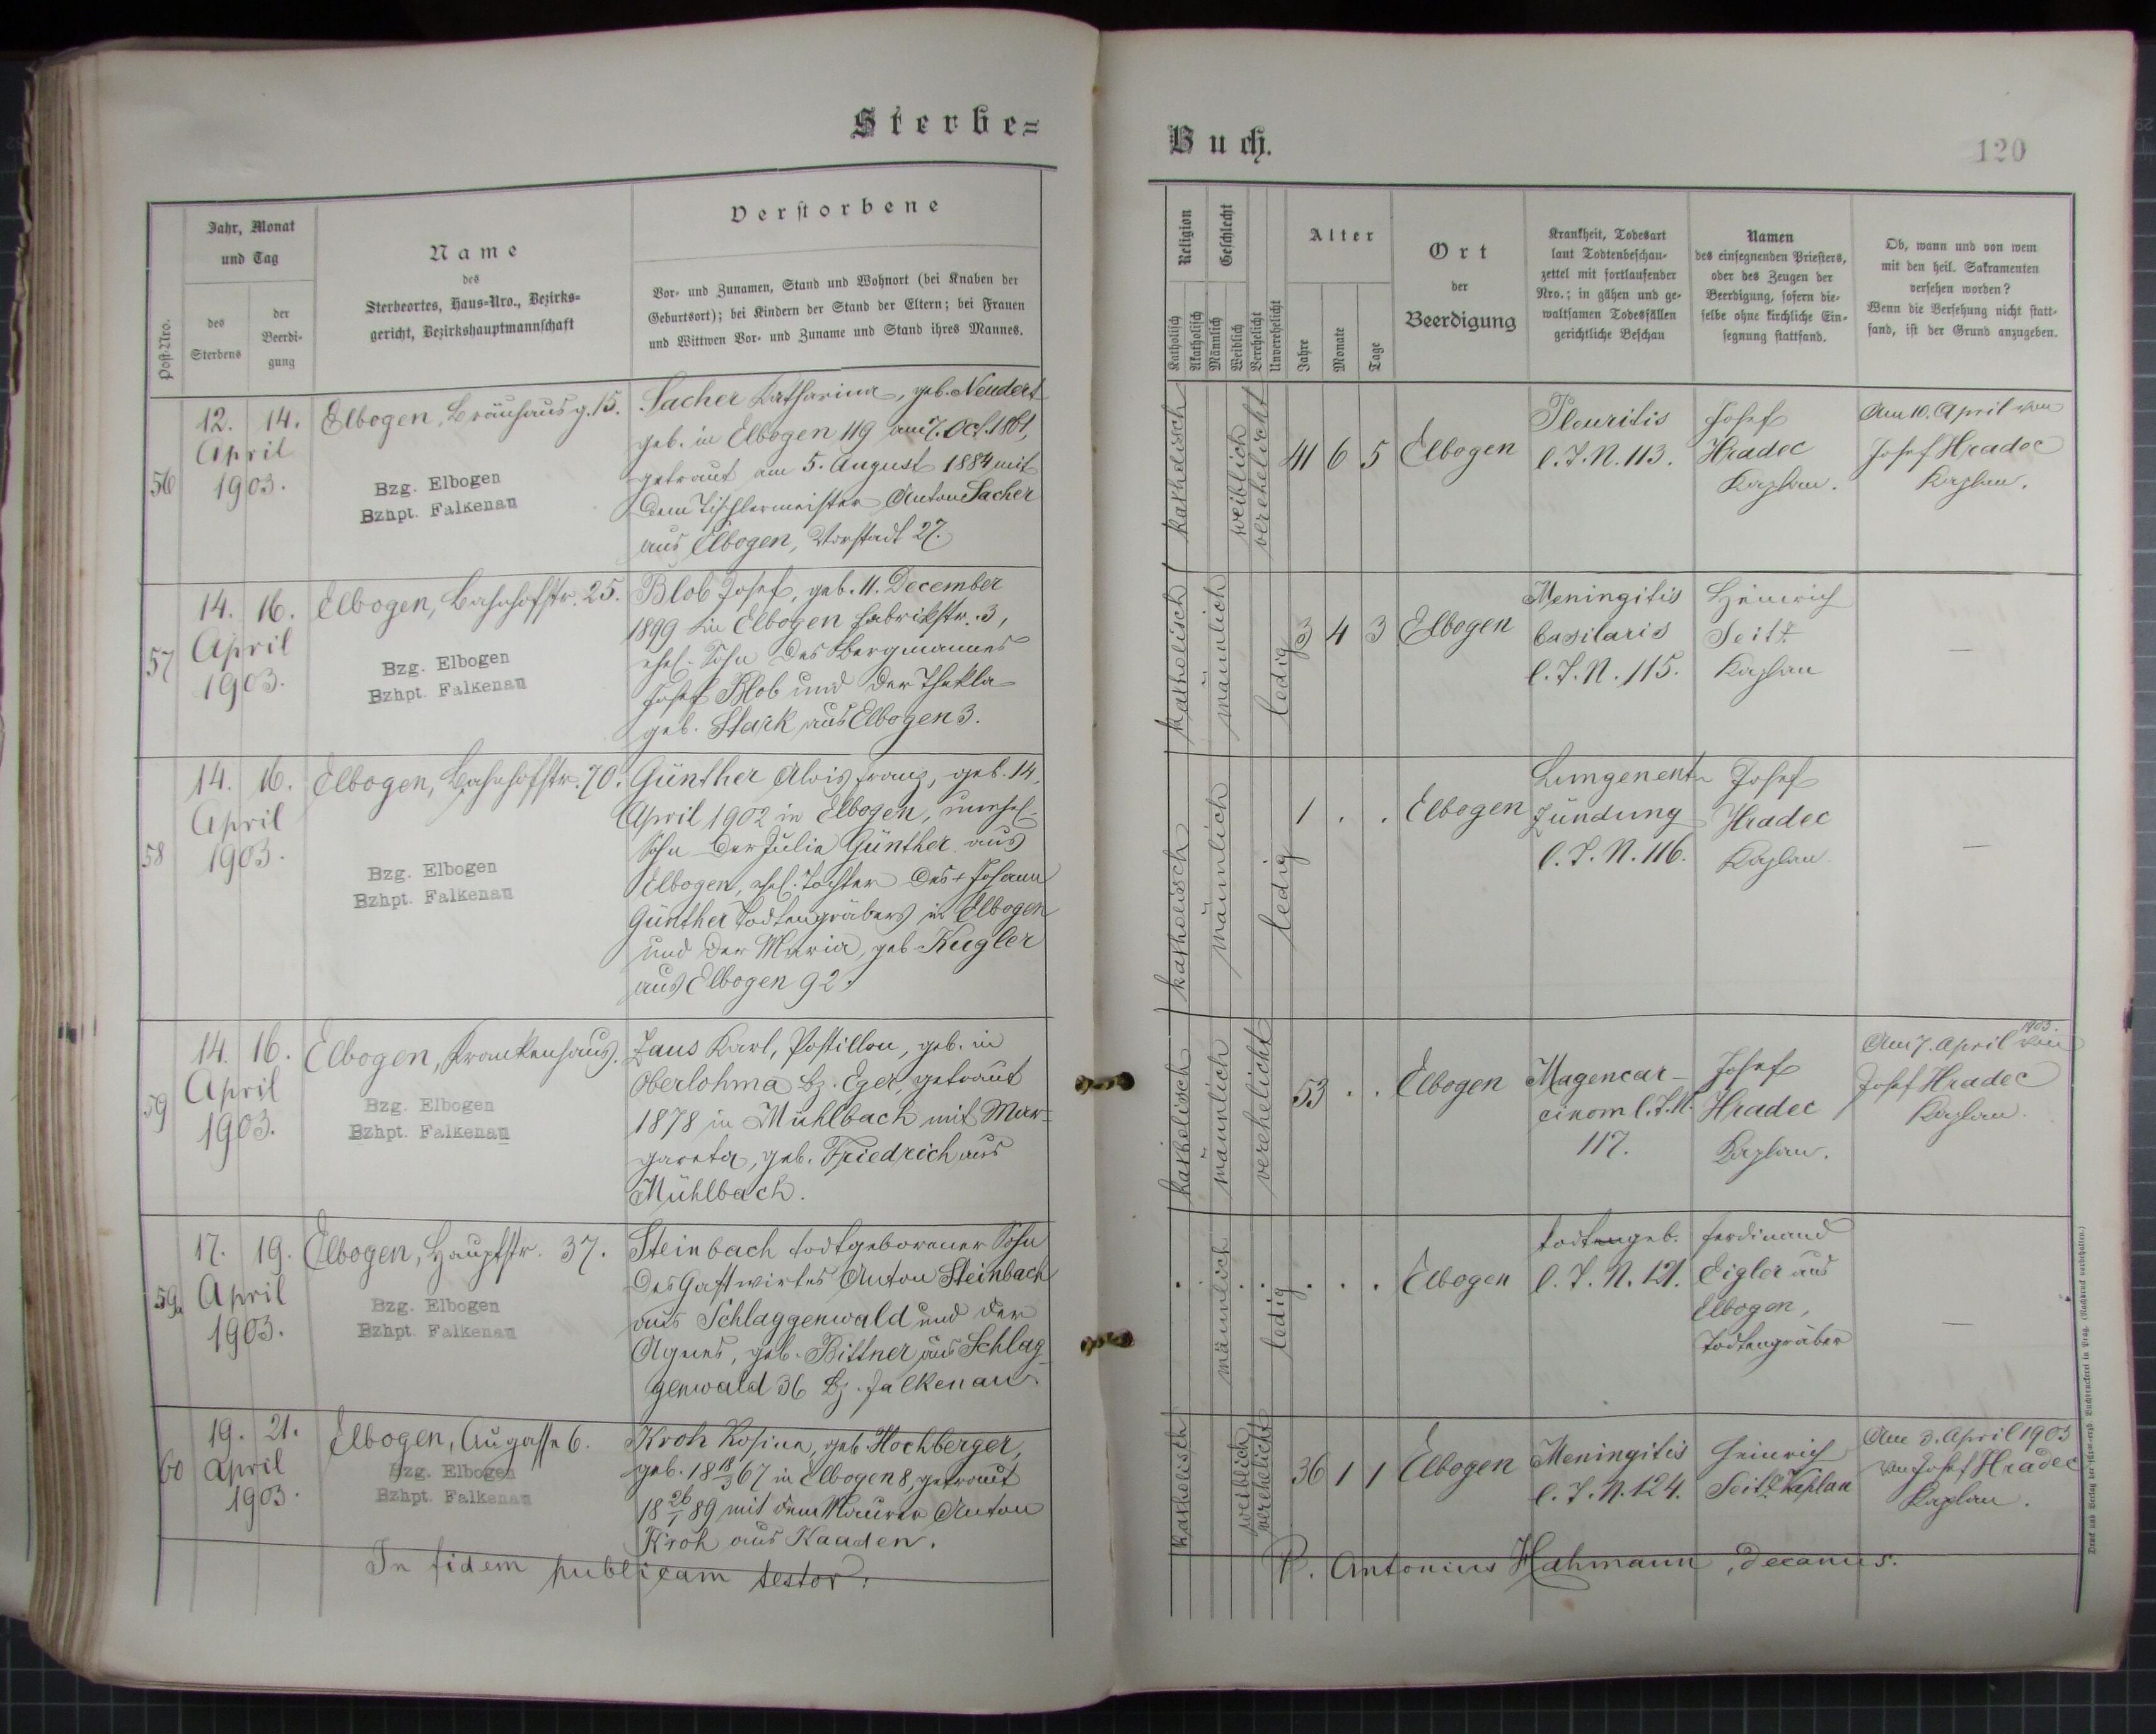 Sterbe=
Buch.
120
Post-Nro.
Jahr, Monat
und Tag
des
Sterbens
der
Beerdi-
gung
Name
des
Sterbeortes, Haus=Nro., Bezirks=
gericht, Bezirkshauptmannschaft
Verstorbene
Vor- und Zunamen, Stand und Wohnort (bei Knaben der
Geburtsort); bei Kindern der Stand der Eltern; bei Frauen
und Wittwen Vor- und Zuname und Stand ihres Mannes.
Religion
Katholisch
Akatholisch
Geschlecht
Männlich
Weiblich
Verehelicht
Unverehelicht
Alter
Jahre
Monate
Tage
Ort
der
Beerdigung
Krankheit, Todesart
laut Todtenbeschau-
zettel mit fortlaufender
Nro.; in gähen und ge-
waltsamen Todesfällen
gerichtliche Beschau
Namen
des einsegnenden Priesters,
oder des Zeugen der
Beerdigung, sofern die-
selbe ohne kirchliche Ein-
segnung stattfand.
Ob, wann und von wem
mit den heil. Sakramenten
versehen worden?
Wenn die Versehung nicht statt-
fand, ist der Grund anzugeben.
56
12. 14.
April
1903.
Elbogen, Bräuhausg. 15.
Bzg. Elbogen
Bzhpt. Falkenau
Sacher Katharina, geb. Neudert
geb. in Elbogen 119 am 7. Oct. 1861,
getraut am 5. August 1884 mit
dem Tischlermeister Anton Sacher
aus Elbogen, Vorstadt 27.
katholisch
weiblich
verehelicht
41 6 5
Elbogen
Pleuritis
l. J. N. 113.
Josef
Hradec
Kaplan.
Am 10. April von
Josef Hradec
Kaplan.
57
14. 16.
April
1903.
Elbogen, Bahnhofstr. 25.
Bzg. Elbogen
Bzhpt. Falkenau
Blob Josef, geb. 11. December
1899 in Elbogen Fabrikstr. 3,
ehel. Sohn des Bergmannes
Josef Blob und der Thekla
geb. Stark aus Elbogen 3.
katholisch
männlich
ledig
3 4 3
Elbogen
Meningitis
basilaris
l. J. N. 115.
Heinrich
Seitz
Kaplan
—
58
14. 16.
April
1903.
Elbogen, Bahnhofstr. 70.
Bzg. Elbogen
Bzhpt. Falkenau
Günther Alois Franz, geb. 14.
April 1902 in Elbogen, unehel.
Sohn der Julie Günther aus
Elbogen, ehel. Tochter des + Johann
Günther Todtengräbers in Elbogen
und der Maria, geb. Kugler
aus Elbogen 92.
katholisch
männlich
ledig
1 . .
Elbogen
Lungenent-
zündung
l. J. N. 116.
Josef
Hradec
Kaplan
—
59
14. 16.
April
1903.
Elbogen, Krankenhaus.
Bzg. Elbogen
Bzhpt. Falkenau
Zaus Karl, Postillon, geb. in
Oberlohma Bz. Eger, getraut
1878 in Mühlbach mit Mar-
gareta, geb. Friedrich aus
Mühlbach.
katholisch
männlich
verehelicht
53 . .
Elbogen
Magencar-
cinom l. J. N.
117.
Josef
Hradec
Kaplan.
1903.
Am 7. April von
Josef Hradec
Kaplan.
59a
17. 19.
April
1903.
Elbogen, Hauptstr. 37.
Bzg. Elbogen
Bzhpt. Falkenau
Steinbach todtgeborener Sohn
des Gastwirtes Anton Steinbach
aus Schlaggenwald und der
Agnes, geb. Bittner aus Schlag-
genwald 36 Bz. Falkenau
männlich
ledig
Elbogen
todtengeb.
l. J. N. 121.
Ferdinand
Eigler aus
Elbogen,
Todtengräber
—
60
19. 21.
April
1903.
Elbogen, Augasse 6.
Bzg. Elbogen
Bzhpt. Falkenau
Kroh Rosina, geb. Hochberger,
geb. 18 18/3 67 in Elbogen 8, getraut
18 26/1 89 mit dem Maurer Anton
Kroh aus Kaaden.
katholisch
weiblich
verehelicht
36 1 1
Elbogen
Meningitis
l. J. N. 124.
Heinrich
Seitz Kaplan
Am 3. April 1903
von Josef Hradec
Kaplan.
In fidem publicam testor:
P. Antonius Hahmann, decanus.